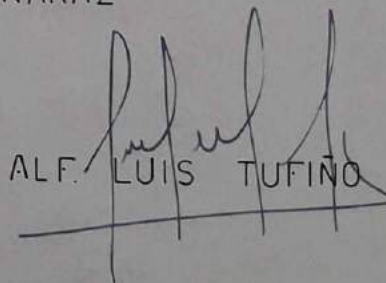 ALF. LUIS TUFIÑO